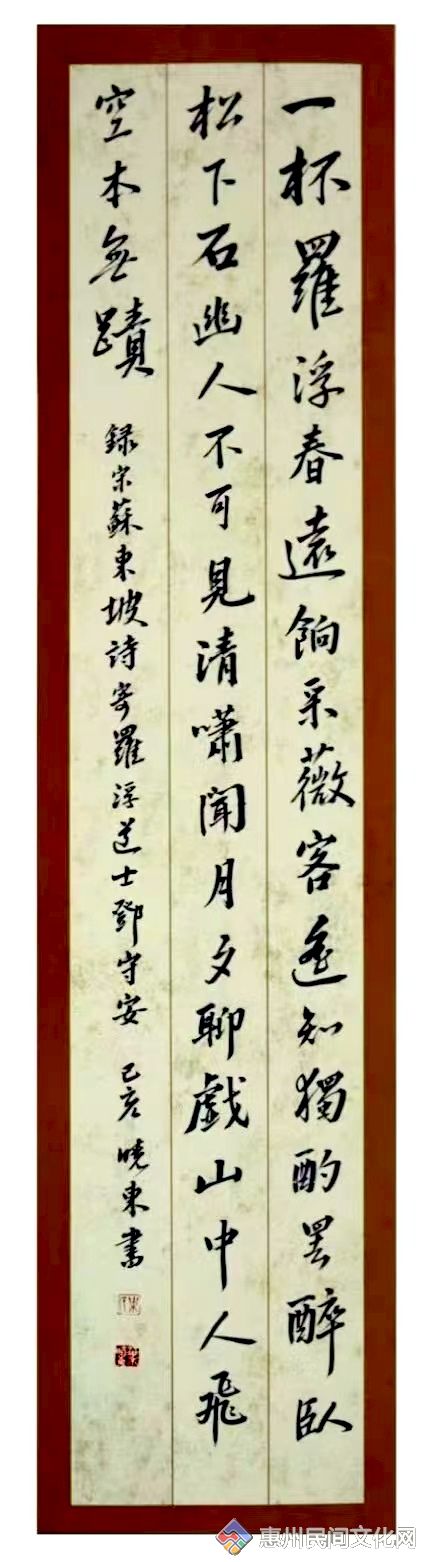 一杯羅浮春遠餉采薇客遥知獨酌罷醉臥
松下石幽人不可見清嘯聞月夕聊戲山中人飛
空本無蹟 録宋蘇東坡詩寄羅浮道士鄧守安 己亥曉東書
惠州民间文化网